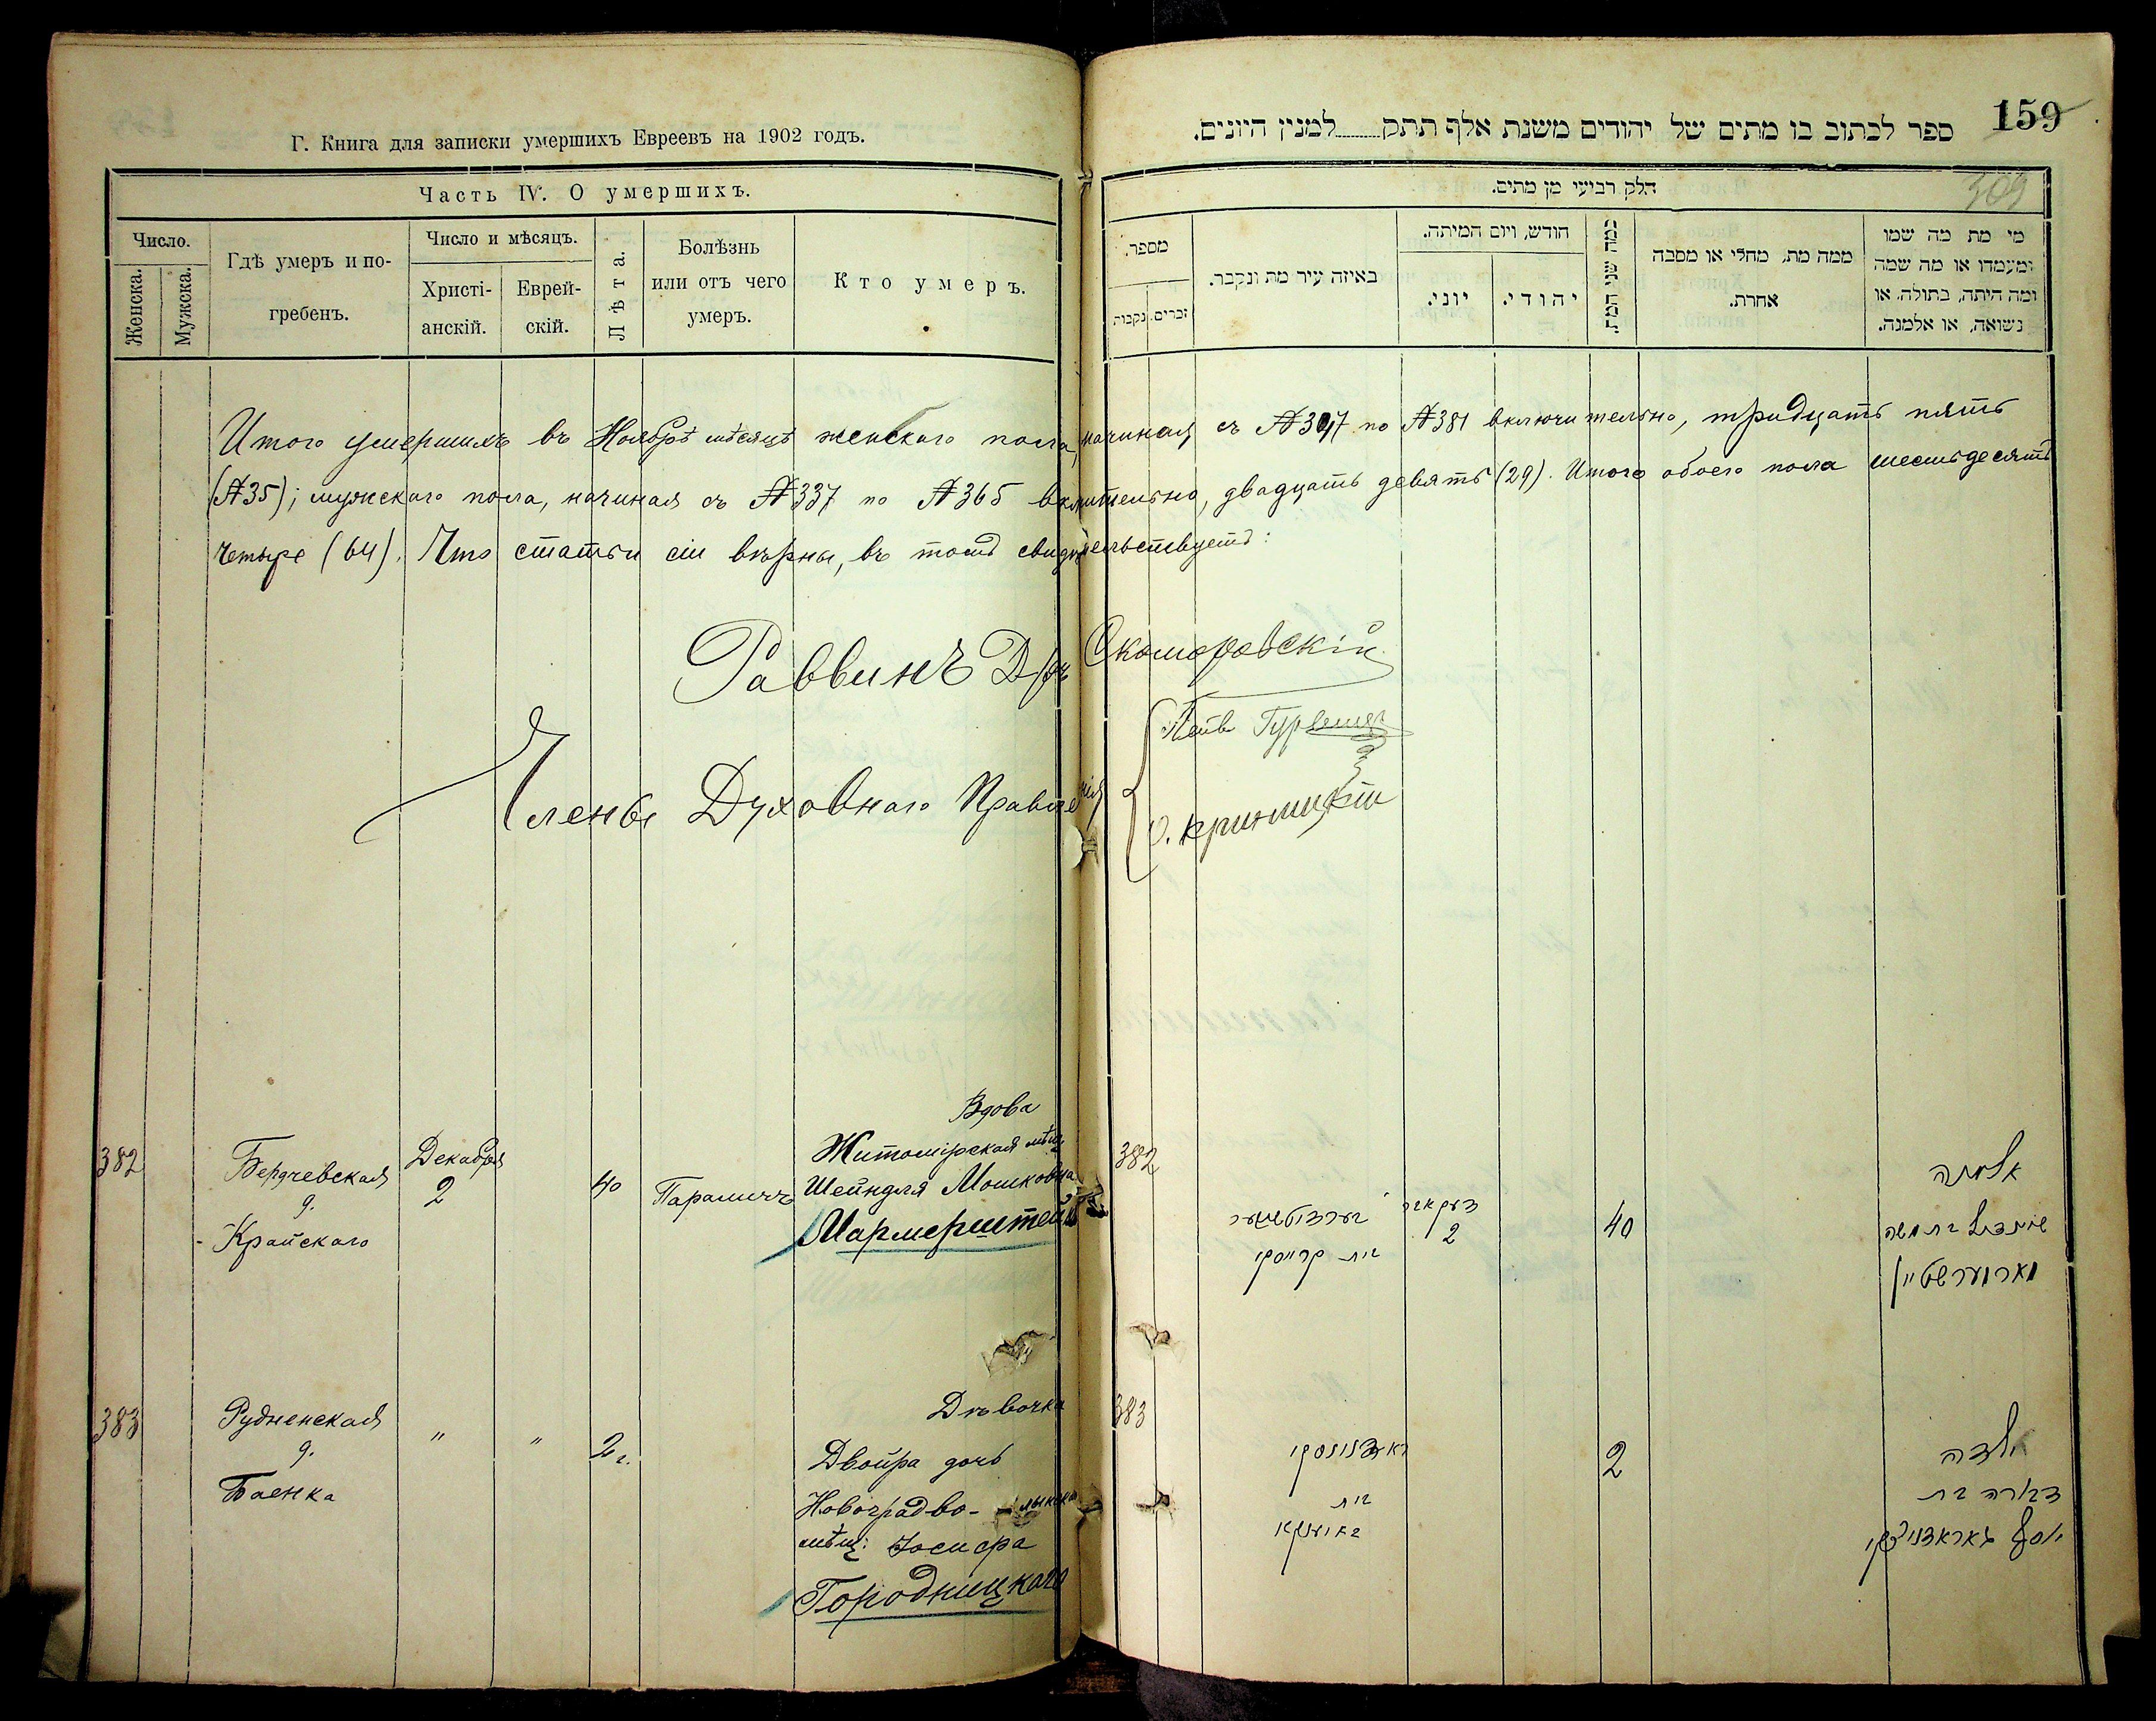 Г. Книга для записки умершихъ Евреевъ на 1902 годъ.
Часть IV. О умершихъ.
Число.
Женска.
Мужска.
Гдѣ умеръ и по-
гребенъ.
Число и мѣсяцъ.
Христі-
анскій.
Еврей-
скій.
Лѣта.
Болѣзнь
или отъ чего
умеръ.
Кто умеръ.
159
ספר לכתוב בו מתים של יהודים משנת אלף תתק למנין היונים.
309
חלק רביעי מן מתים.
מספר.
זכרים.
נקבות
באיזה עיר מת ונקבר.
חודש, ויום המיתה.
יוני.
יהודי.
כמה שני המת.
ממה מת, מחלי או מסבה
אחרת.
מי מת מה שמו
ומעמדו או מה שמה
ומה היתה, בתולה, או
נשואה, או אלמנה.
Итого умершихъ въ Ноябрѣ мѣсяцѣ женскаго пола, начиная съ №347 по №381 включительно, тридцать пять
(№35); мужскаго пола, начиная съ №337 по №365 включительно, двадцать девять (29). Итого обоего пола шестьдесятъ
четыре (64). Что статьи сіи вѣрны, въ томъ свидѣтельствуетъ:
Раввинъ Д-ръ Скоморовскій
Члены Духовнаго Правленія
Гурвицъ
О. Криницкій
382
Бердчевская
д.
Крайскаго
Декабря
2
40
Параличъ
Вдова
Житомірская мѣщ.
Шейндля Мошковна
Мармерштейнъ
382
בערדיטשעווער
בית קרייסקי
דעקאבר
2
40
אלמנה
שיינדיל בת משה
מארמערשטיין
383
Рудненская
д.
Баенка
"
"
2 г.
Дѣвочка
Двойра дочь
Новоградво-лынскаго
мѣщ. Іосифа
Городницкаго
383
בית
2
ילדה
דבורה בת
יוסף גאראדניצקי